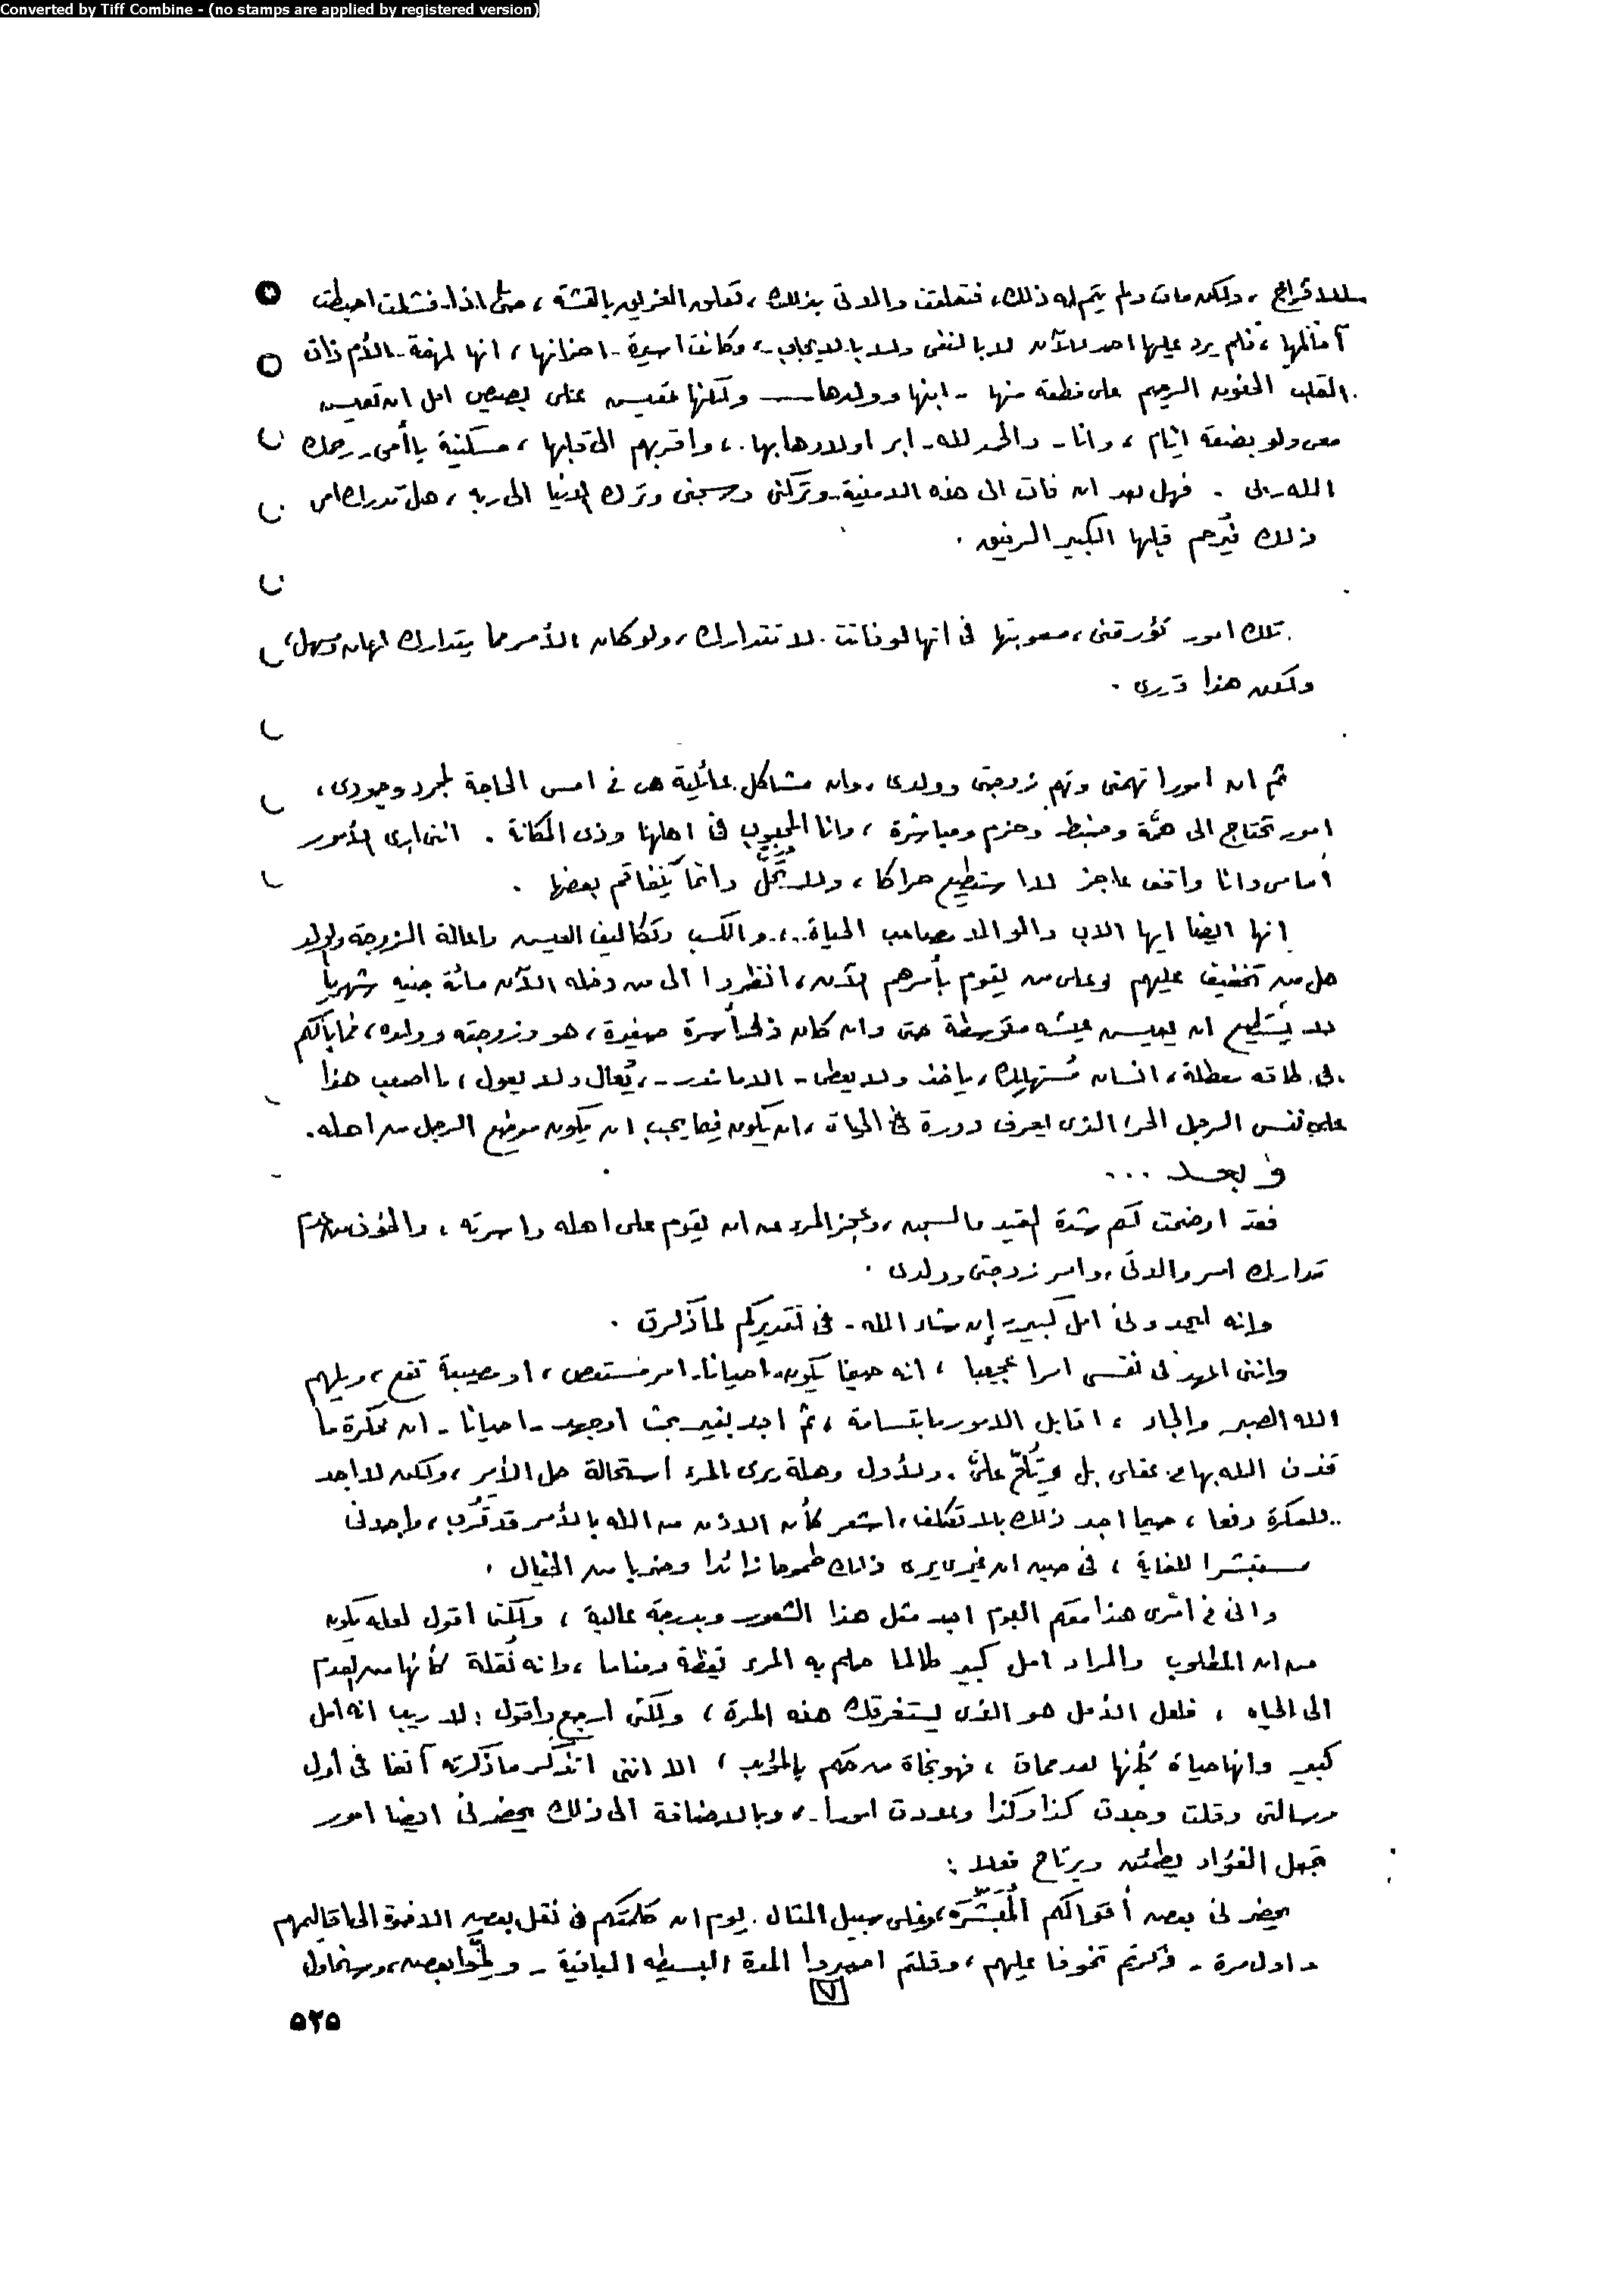 Converted by Tiff Combine - (no stamps are applied by registered version)
للافراج ، ولكن مات ولم يتم له ذلك، فتعلقت والدتى بذلك ، تعلق الغريق بالقشة ، حتى اذا فشلت احبطت
آمالها ، فلم يرد عليها احد للآن لا بالنفى ولا بالايجاب - ، وكانت اسيرة - احزانها ، انها لهفة - الأم ذات
القلب الحنون الرحيم على قطعة منها - ابنها وولدها - ولكنها تعيش على بصيص امل ان تعيش
معى ولو بضعة ايام ، وانا - والحمد لله - ابر اولادها بها ، واقربهم الى قلبها ، مسكينة يا أمى - رحمك
الله - بى . فهل بعد ان فاتت الى هذه الامنية - وتركنى وسجنى وترك الدنيا الى ربه ، هل تدرك امى
ذلك فيرحم قلبها الكبير الرقيق .
تلك امور تؤرقنى ، صعوبتها فى انها لو فاتت لا تتدارك ، ولو كان الأمر مما يتدارك لهان وسهل ،
ولكن هذا قدرى .
ثم ان امورا تهمنى وتهم زوجتى وولدى ، وان مشاكل عائلية هى فى امس الحاجة لمجرد وجودى ،
امور تحتاج الى همة وضبط وحزم ومباشرة ، وانا المحبوب فى اهلها وذى المكانة . اننى ارى الأمور
أمامى وانا واقف عاجز لا استطيع حراكا ، ولا تحل وانما يتفاقم بعضها .
إنها ايضا ايها الاب والوالد مصاعب الحياة .. ، والكسب وتكاليف العيش واعالة الزوجة والولد
هل من تخفيف عليهم وعلى من يقوم بأمرهم الآن ، انظروا الى من دخله الآن مائة جنيه شهريا
لا يستطيع ان يعيش عيشه متوسطة حتى وان كان ذا أسرة صغيرة ، هو وزوجته وولده ، فما بالكم
فى طاقه معطلة ، انسان مُستهلِك ، يأخذ ولا يعطى - الا ما ندر - ، يُعال ولا يعول ، ما اصعب هذا
على نفس الرجل الحر الذى يعرف دورة فى الحياة ، ان يكون فيما يجب ان يكون موضع الرجل من اهله .
و بعد ...
فقد اوضحت لكم شدة القيد والسجن ، وعجز المرء عن ان يقوم على اهله واسرته ، والخوف من عدم
تدارك امر والدتى ، وامر زوجتى وولدى .
وانه ليحدونى امل كبير - إن شاء الله - فى تقديركم لما ذكرت .
واننى لأجد فى نفسى امرا عجيبا ، انه حينما يكون - احيانا - امر مستعص ، او مصيبة تقع ، ويلهم
الله الصبر والجلد ، اقابل الامور بابتسامة ، ثم اجد بغير بحث او جهد - احيانا - ان فكرة ما
قذف الله بها فى عقلى بل وتُلحّ علىّ . ولأول وهلة يرى المرء استحالة حل الأمر ، ولكن لا اجد
للفكرة دفعا ، حينما اجد ذلك بلا تكلف ، اشعر كأن الاذن من الله بالأمر قد قرُب ، واجدنى
مستبشرا للغاية ، فى حين ان غيرى يرى ذلك طموحا زائدا وضربا من الخيال .
وانى فى أمرى هذا معكم اليوم اجد مثل هذا الشعور وبدرجة عالية ، ولكننى اقول لعله يكون
من ان المطلوب والمراد امل كبير طالما حلم به المرء يقظة ومناما ، وانه نُقلة كأنها من العدم
الى الحياه ، فلعل الأمل هو الذى يستغرقك هذه المرة ، ولكنى ارجع واقول : لا ريب انه امل
كبير وانها حياة كأنها بعد ممات ، فهو نجاة من حكم بالمؤبد ، الا اننى اتذكر ما ذكرته آنفا فى أول
رسالتى وقلت وجدت كذا وكذا وعددت امورا - ، وبالاضافة الى ذلك يحضرنى ايضا امور
تجعل الفؤاد يطمئن ويرتاح فعلا :
يحضرنى بعض أقوالكم المُبَشِّرة ، وعلى سبيل المثال . يوم ان كلمتكم فى نقل بعض الاخوة الى اقاليمهم
- اول مرة - فكرتم تخوفا عليهم ، وقلتم اصبروا المدة البسيطه الباقية - ولمّحوا بعض ، وسنحاول
٧
٥٢٥